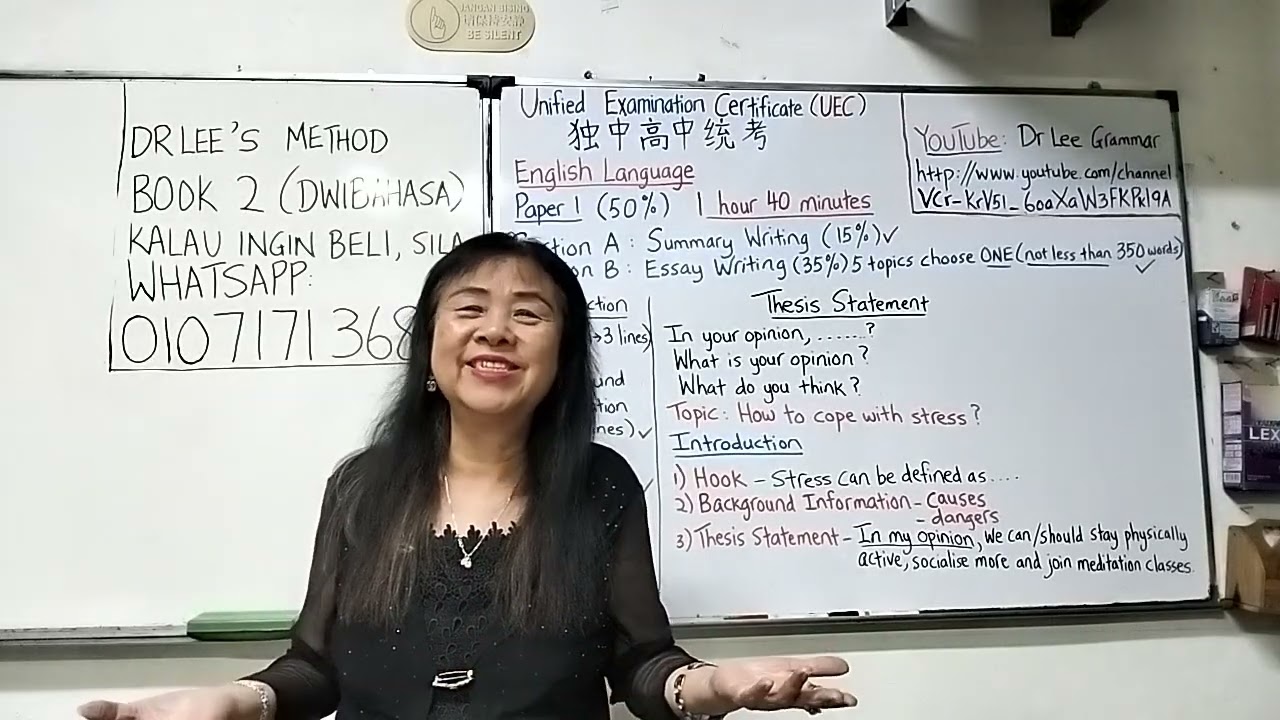 JANGAN BISING
请保持安静
BE SILENT
DR LEE'S METHOD
BOOK 2 (DWIBAHASA)
KALAU INGIN BELI, SILA
WHATSAPP:
0107171368
Unified Examination Certificate (UEC)
独中高中统考
English Language
Paper 1 (50%) 1 hour 40 minutes
ction A : Summary Writing (15%)✓
on B : Essay Writing (35%) 5 topics choose ONE (not less than 350 words) ✓
YouTube: Dr Lee Grammar
http://www.youtube.com/channel
ction
→3 lines)
und
tion
nes) ✓
Thesis Statement
In your opinion, ......?
What is your opinion?
What do you think?
Topic: How to cope with stress?
Introduction
1) Hook - Stress can be defined as ....
2) Background Information - causes
- dangers
3) Thesis Statement - In my opinion, we can/should stay physically
active, socialise more and join meditation classes.
LEX